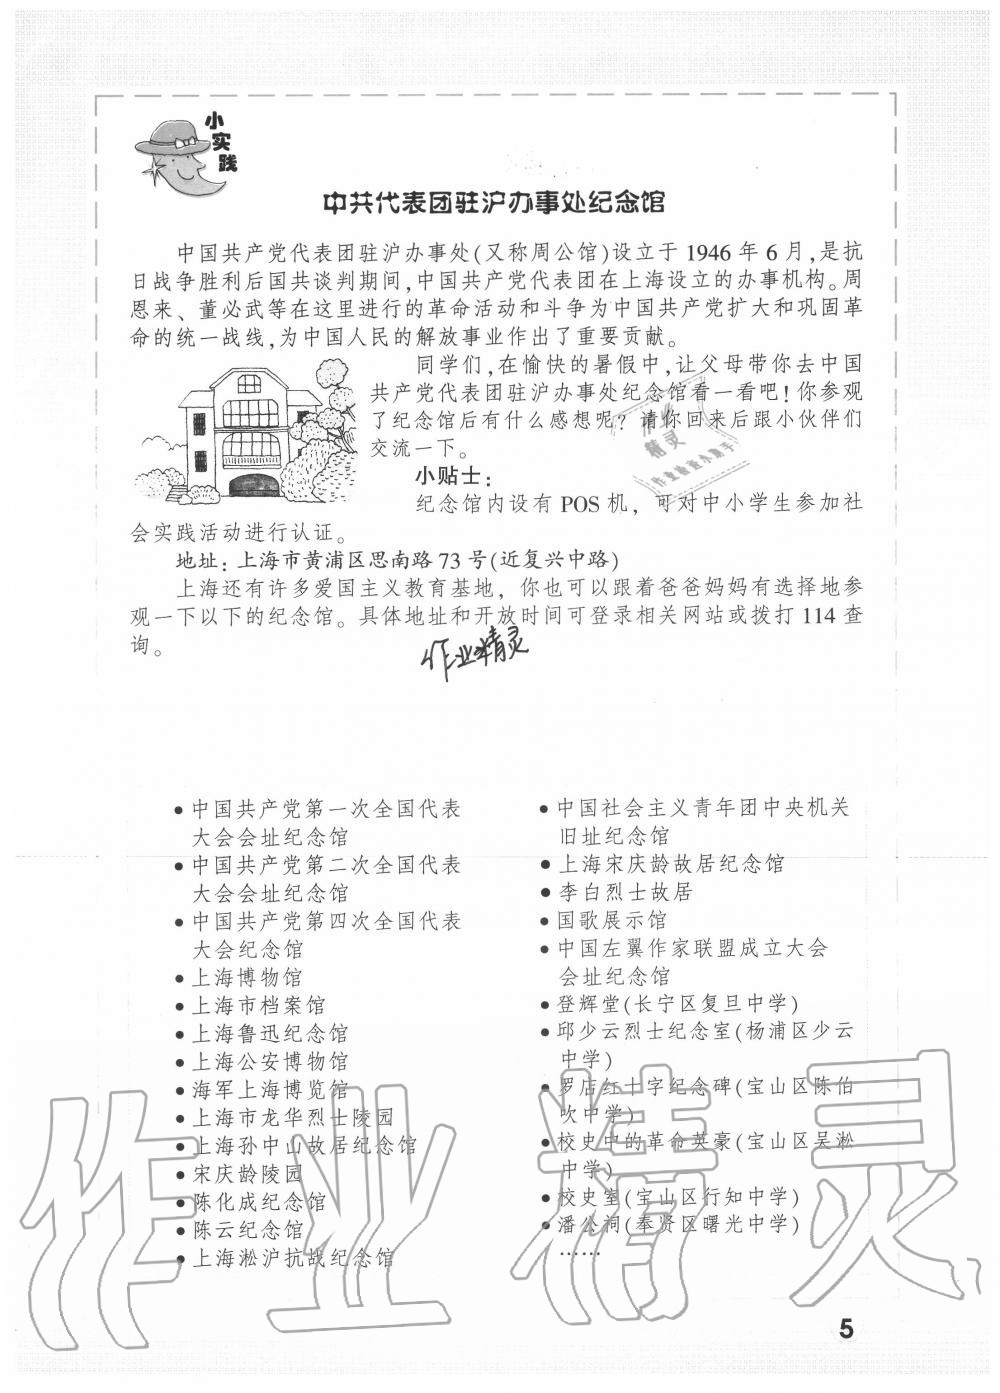 小实践
中共代表团驻沪办事处纪念馆
中国共产党代表团驻沪办事处(又称周公馆)设立于 1946 年 6 月,是抗
日战争胜利后国共谈判期间,中国共产党代表团在上海设立的办事机构。周
恩来、董必武等在这里进行的革命活动和斗争为中国共产党扩大和巩固革
命的统一战线,为中国人民的解放事业作出了重要贡献。
同学们,在愉快的暑假中,让父母带你去中国
共产党代表团驻沪办事处纪念馆看一看吧!你参观
了纪念馆后有什么感想呢?请你回来后跟小伙伴们
交流一下。
小贴士:
纪念馆内设有 POS 机，可对中小学生参加社
会实践活动进行认证。
地址:上海市黄浦区思南路 73 号(近复兴中路)
上海还有许多爱国主义教育基地，你也可以跟着爸爸妈妈有选择地参
观一下以下的纪念馆。具体地址和开放时间可登录相关网站或拨打 114 查
询。
作业精灵
●中国共产党第一次全国代表
大会会址纪念馆
●中国共产党第二次全国代表
大会会址纪念馆
●中国共产党第四次全国代表
大会纪念馆
●上海博物馆
●上海市档案馆
●上海鲁迅纪念馆
●上海公安博物馆
●海军上海博览馆
●上海市龙华烈士陵园
●上海孙中山故居纪念馆
●宋庆龄陵园
●陈化成纪念馆
●陈云纪念馆
●上海淞沪抗战纪念馆
●中国社会主义青年团中央机关
旧址纪念馆
●上海宋庆龄故居纪念馆
●李白烈士故居
●国歌展示馆
●中国左翼作家联盟成立大会
会址纪念馆
●登辉堂(长宁区复旦中学)
●邱少云烈士纪念室(杨浦区少云
中学)
●罗店红十字纪念碑(宝山区陈伯
吹中学)
●校史中的革命英豪(宝山区吴淞
中学)
●校史室(宝山区行知中学)
●潘公祠(奉贤区曙光中学)
……
作业精灵
5